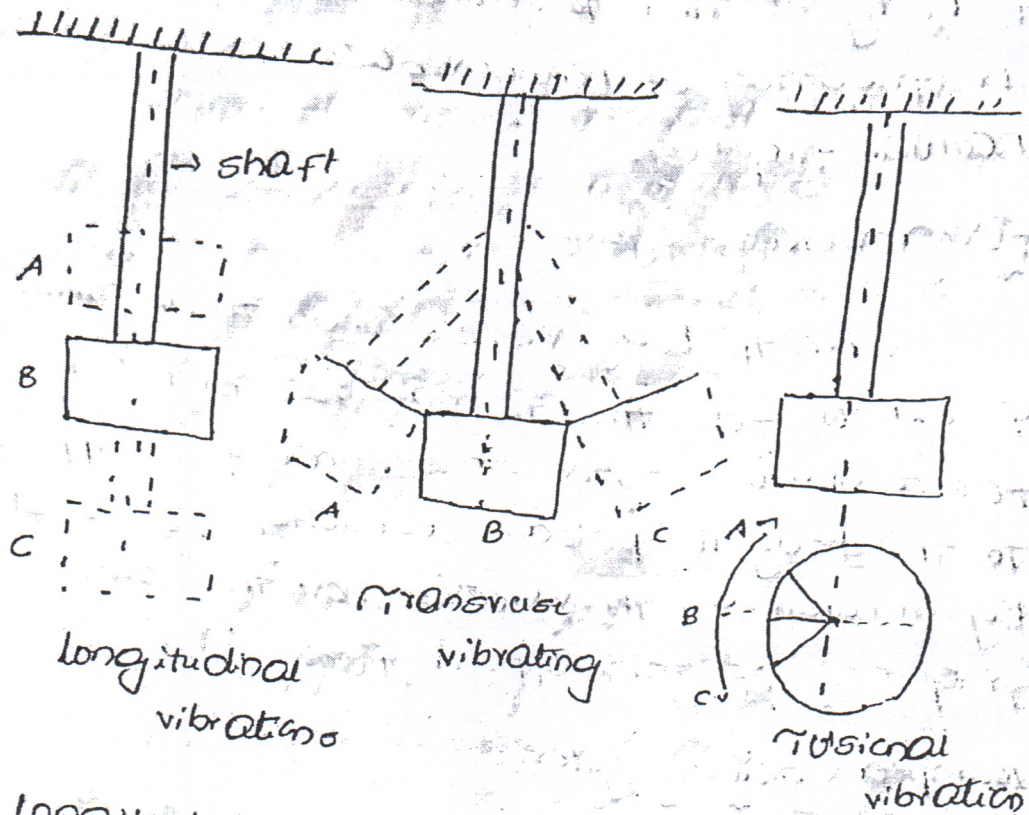 → shaft
A
B
C
longitudinal
vibrations
A
B
C
Transverse
vibrating
A
B
C
Tusional
vibration